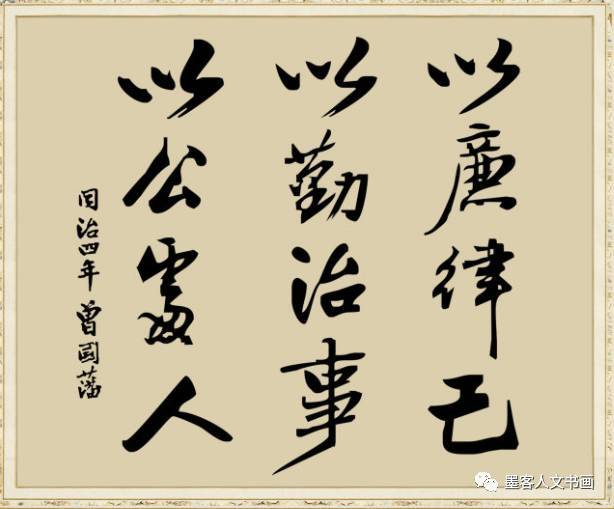 以廉律己
以勤治事
以公處人
同治四年 曾國藩
墨客人文书画